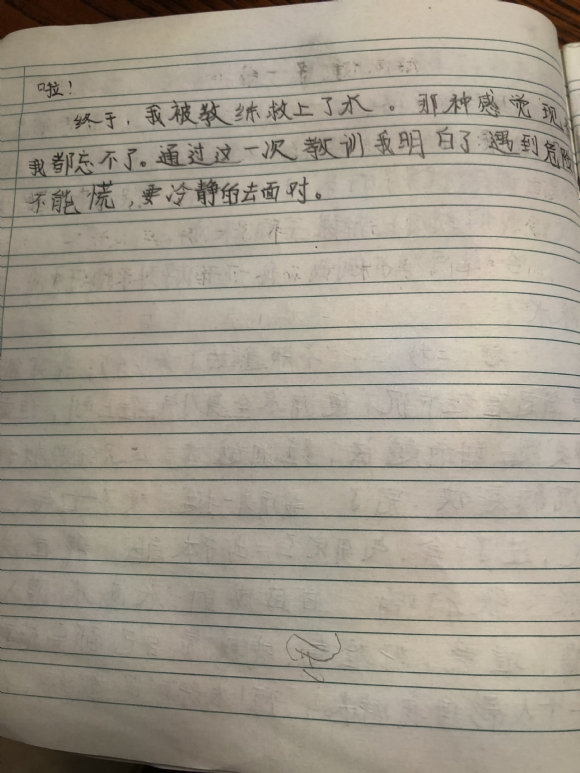 啦！
终于，我被教练救上了水。那种感觉现
我都忘不了。通过这一次教训我明白了遇到危险
不能慌，要冷静的去面对。